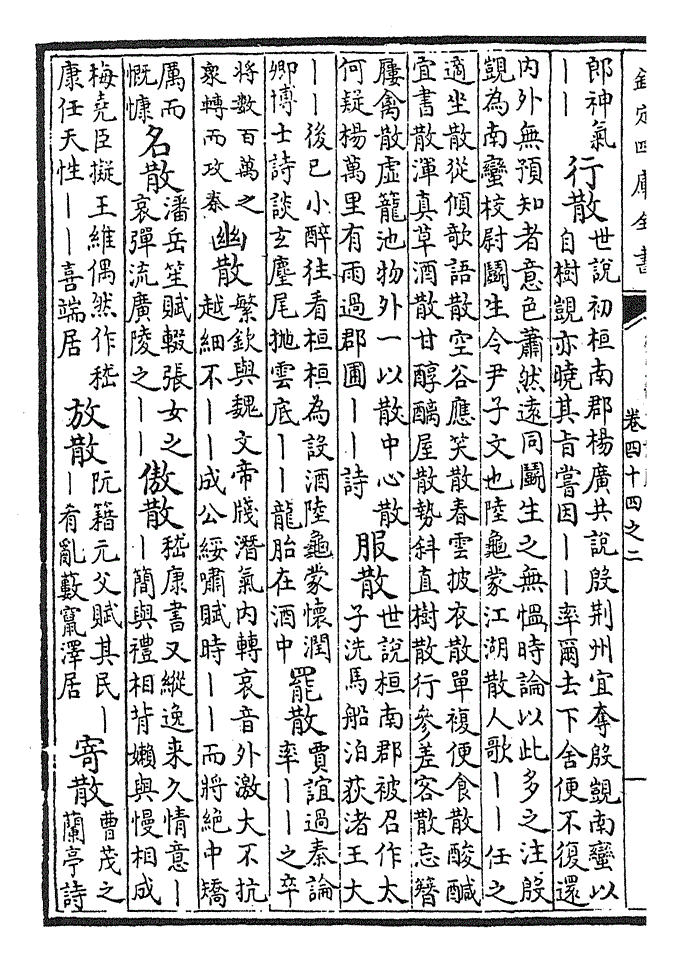 欽定四庫全書
卷四十四之二
郎神氣
——
行散
世說初桓南郡楊廣共說殷荆州宜奪殷覬南蠻以
自樹覬亦曉其旨嘗因——率爾去下舍便不復還
内外無預知者意色蕭然遠同鬭生之無愠時論以此多之注殷
覬為南蠻校尉鬭生令尹子文也陸龜蒙江湖散人歌——任之
適坐散從傾歌語散空谷應笑散春雲披衣散單複便食散酸鹹
宜書散渾真草酒散甘醇醨屋散勢斜直樹散行參差客散忘簪
屨禽散虛籠池物外一以散中心散
何疑楊萬里有雨過郡圃——詩
服散
世說桓南郡被召作太
子洗馬船泊荻渚王大
——後已小醉往看桓桓為設酒陸龜蒙懷潤
卿博士詩談玄麈尾抛雲底——龍胎在酒中
罷散
賈誼過秦論
率——之卒
將數百萬之
衆轉而攻秦
幽散
繁欽與魏文帝牋潛氣内轉哀音外激大不抗
越細不——成公綏嘯賦時——而將絕中矯
厲而
慨慷
名散
潘岳笙賦輟張女之
哀彈流廣陵之——
傲散
嵇康書又縱逸来久情意—
—簡與禮相背嬾與慢相成
梅堯臣擬王維偶然作嵇
康任天性——喜端居
放散
阮籍元父賦其民—
—有亂藪竄澤居
寄散
曹茂之
蘭亭詩